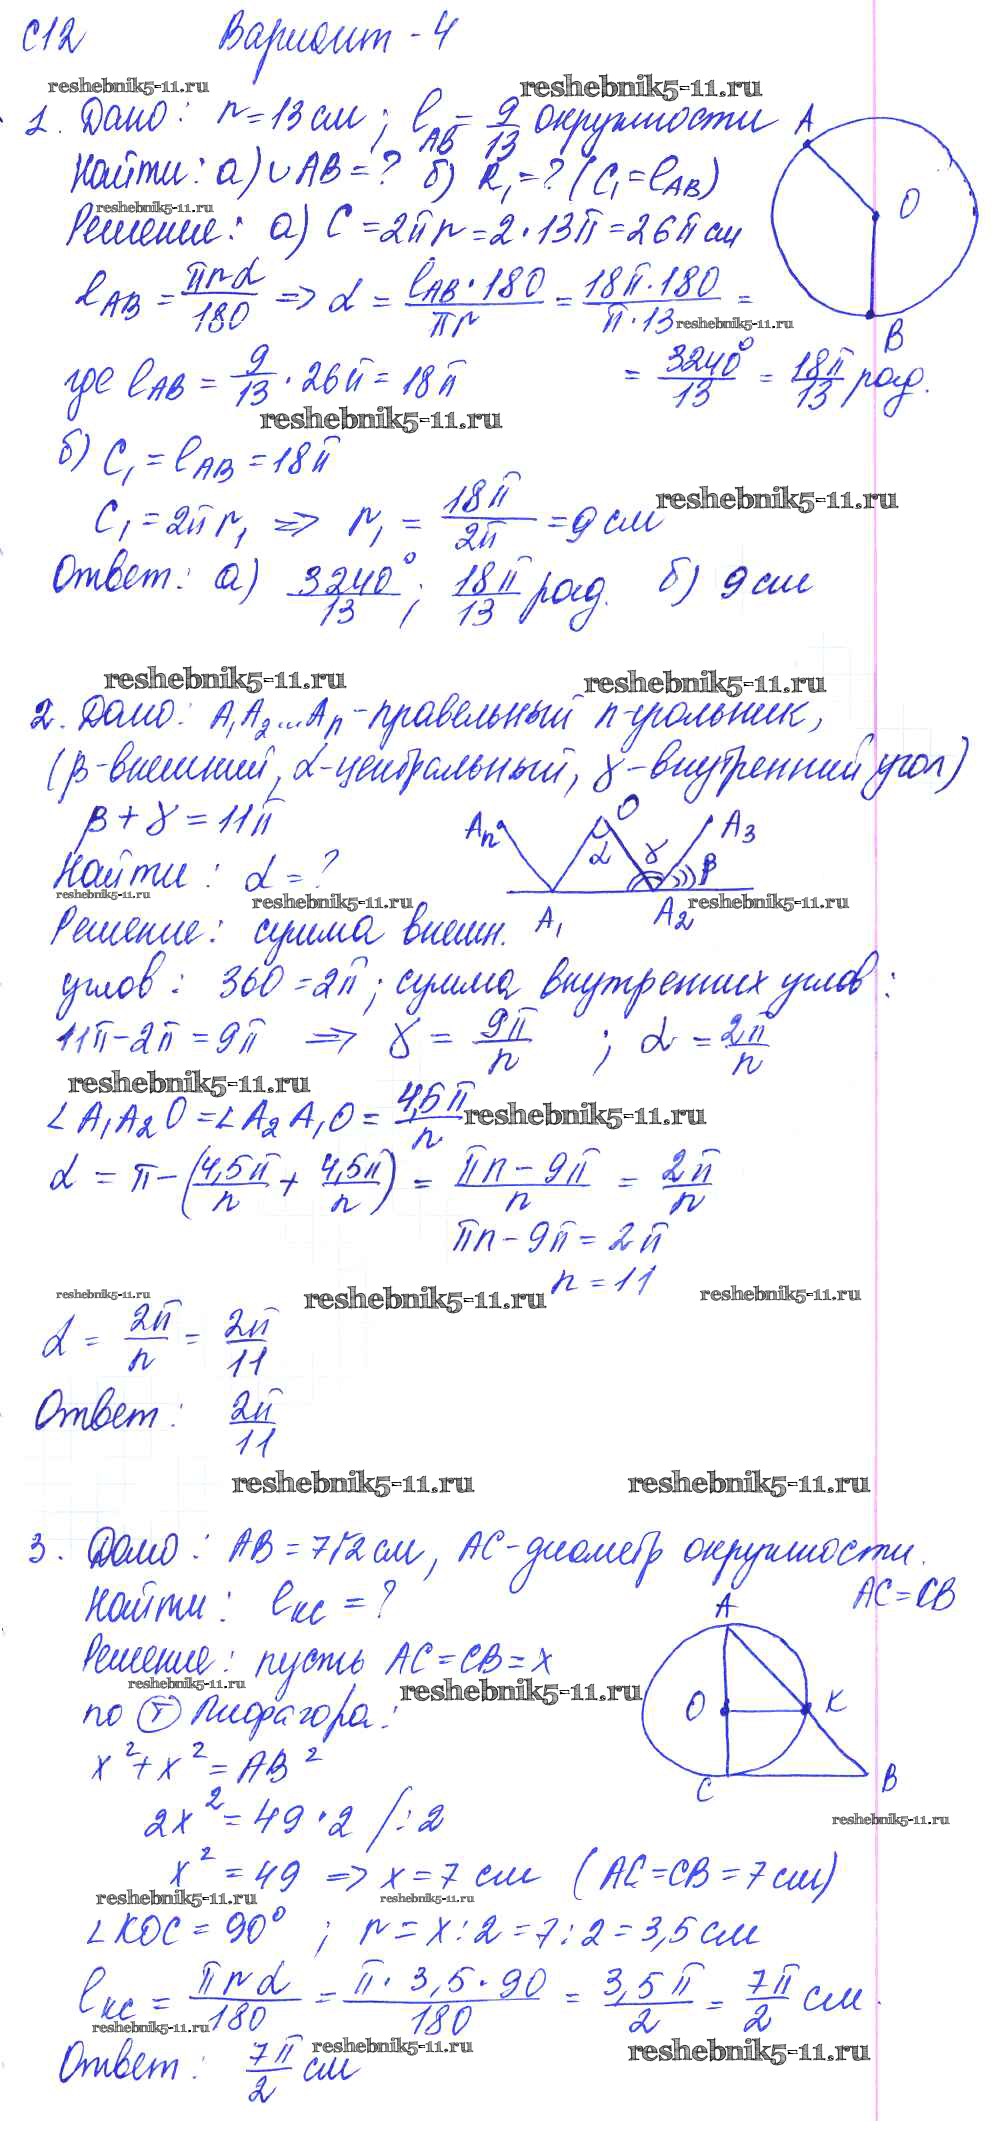 С12 Вариант - 4
reshebnik5-11.ru reshebnik5-11.ru
1. Дано: r = 13 см ; l AB = 9/13 окружности
Найти: а) ∪ AB = ? б) R₁ = ? (C₁ = l AB)
reshebnik5-11.ru
Решение: а) C = 2πr = 2 · 13π = 26π см
l AB = πrα/180 => α = l AB · 180/πr = 18π · 180/π · 13 =
reshebnik5-11.ru
где l AB = 9/13 · 26π = 18π = 3240°/13 = 18π/13 рад.
reshebnik5-11.ru
б) C₁ = l AB = 18π
reshebnik5-11.ru
C₁ = 2πr₁ => r₁ = 18π/2π = 9 см
Ответ: а) 3240°/13 ; 18π/13 рад. б) 9 см
A
O
B
reshebnik5-11.ru reshebnik5-11.ru
2. Дано: A₁A₂...Aₙ - правельный n-угольник,
(β - внешний, α - центральный, γ - внутренний угол)
β + γ = 11π
Найти: α = ?
reshebnik5-11.ru reshebnik5-11.ru reshebnik5-11.ru
Aₙ O A₃
α γ β
A₁ A₂
Решение: сумма внешн.
углов: 360 = 2π ; сумма внутренних углов:
11π - 2π = 9π => γ = 9π/n ; α = 2π/n
reshebnik5-11.ru
∠A₁A₂O = ∠A₂A₁O = 4,5π/n
reshebnik5-11.ru
α = π - (4,5π/n + 4,5π/n) = πn - 9π/n = 2π/n
πn - 9π = 2π
n = 11
reshebnik5-11.ru reshebnik5-11.ru reshebnik5-11.ru
α = 2π/n = 2π/11
Ответ: 2π/11
reshebnik5-11.ru reshebnik5-11.ru
3. Дано: AB = 7√2 см, AC - диаметр окружности.
AC = CB
Найти: l KC = ?
Решение: пусть AC = CB = x
reshebnik5-11.ru reshebnik5-11.ru
по Т Пифагора:
x² + x² = AB²
2x² = 49 · 2 /:2
A
O K
C B
reshebnik5-11.ru
x² = 49 => x = 7 см (AC = CB = 7 см)
reshebnik5-11.ru reshebnik5-11.ru
∠KOC = 90° ; r = x : 2 = 7 : 2 = 3,5 см
l KC = πrα/180 = π · 3,5 · 90/180 = 3,5π/2 = 7π/2 см.
reshebnik5-11.ru reshebnik5-11.ru reshebnik5-11.ru
Ответ: 7π/2 см